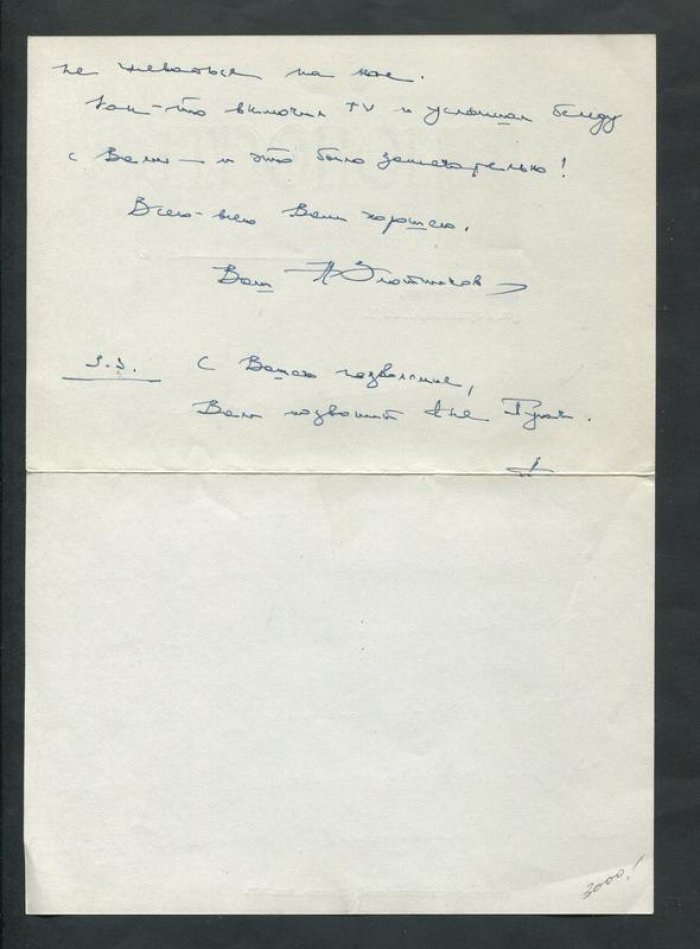 не на мне.
Как-то включил TV и услышал беседу
с Вами — и это было замечательно!
Всего-всего Вам хорошего.
Ваш А Злотников
З.З. С Вашего позволения,
Вам позвонит
А
3000!